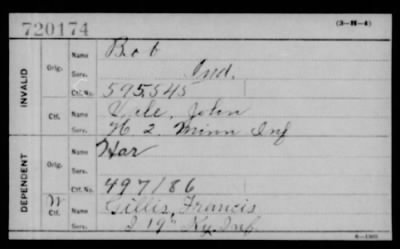 720174 (3-H-4)
INVALID
Orig. Name Bob
Serv. Ind.
Ctf. No. 595,545
Ctf. Name John
Serv. H 2. Minn Inf
DEPENDENT
Orig. Name Har
Serv.
Ctf. No. 497186
W Ctf. Name Gillis, Francis
Serv. I 19" Ky. Inf.